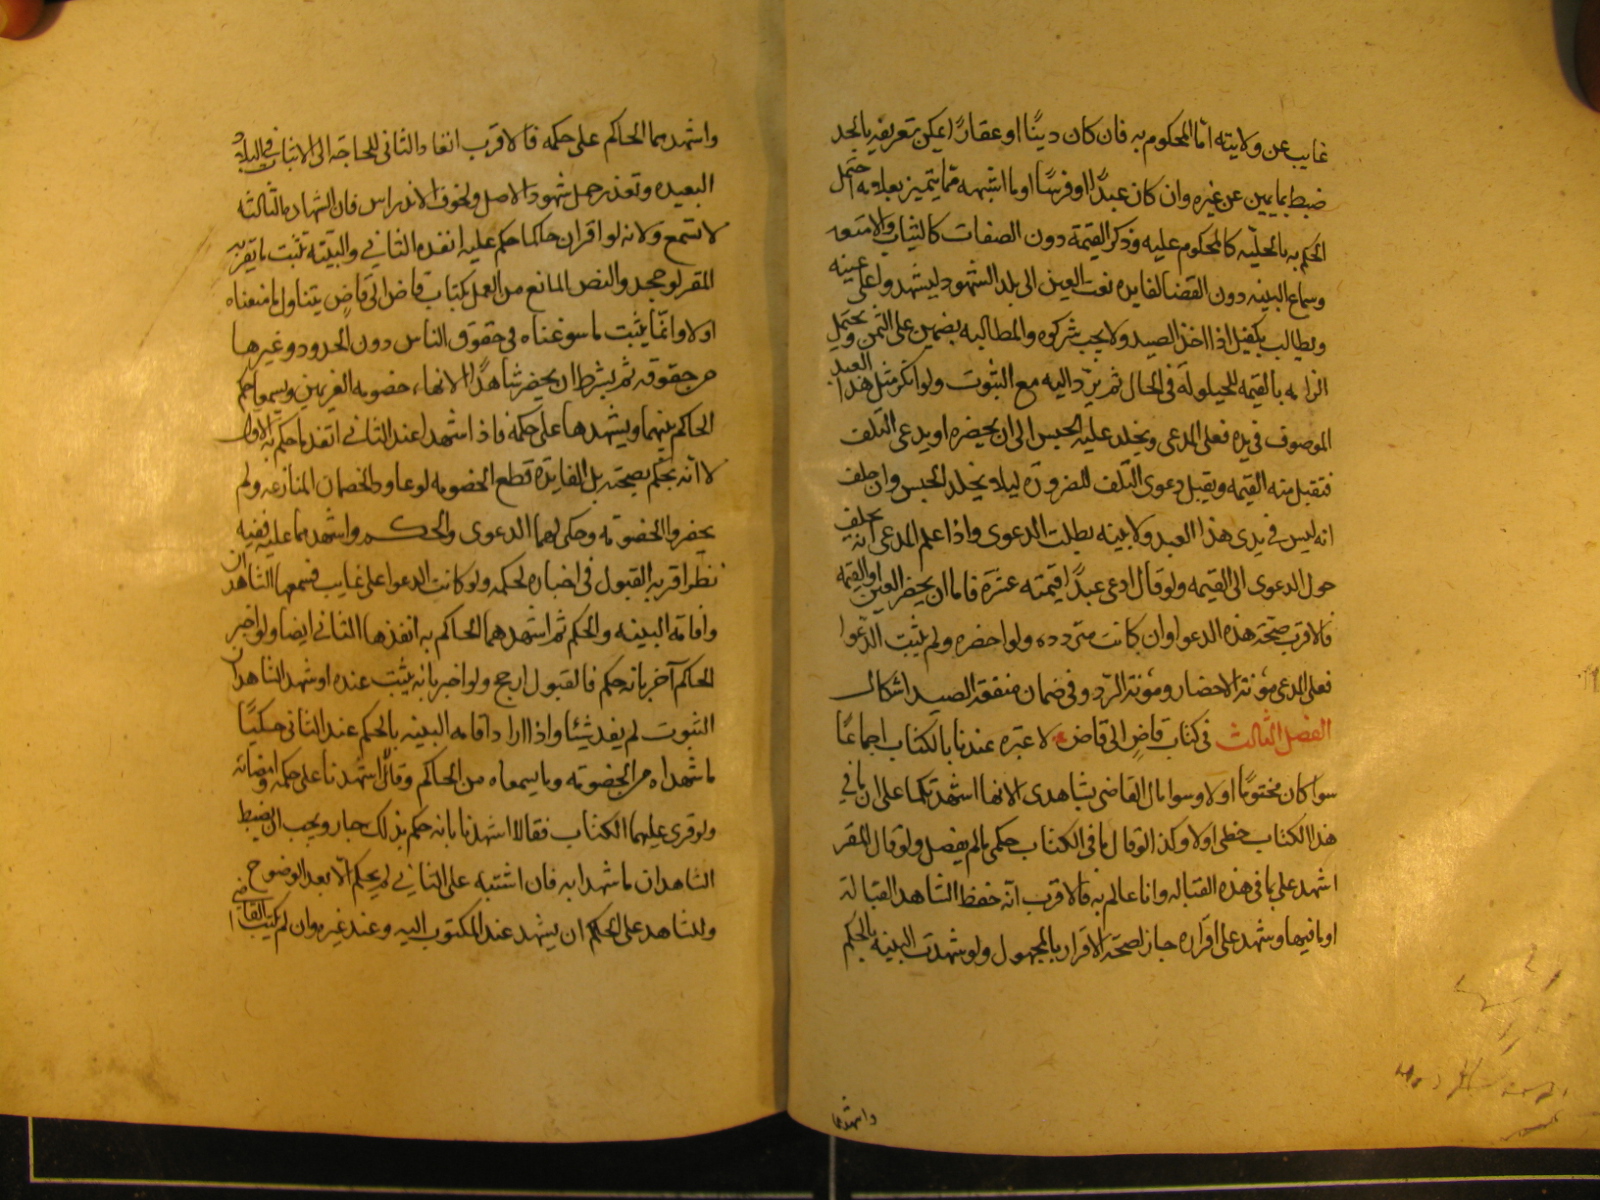 غايب عن ولايته امّا المحكوم به فان كان دينًا او عقارًا يمكن تعريفه بالحد
ضبط بما يميز عن غيره وان كان عبدًا او فرسًا او ما اشبهه مما يتميز بعلامه احتمل
الحكم به بالحليّه كالمحكوم عليه وذكر القيمة دون الصفات كالثياب والامتعه
وسماع البينه دون القضا لفايده بعث العين الى بلد الشهود ليشهدوا على عينه
ويطالب بكفيل اذا اخذ العبد ولا يجب شركوه والمطالبه بضمين على الثمن ويحتمل
الزامه بالقيمه للحيلولة فى الحال ثم يردّ اليه مع الثبوت ولو انكر مثل هذا العبد
الموصوف فى يده فعلى المدعى ويخلد عليه الحبس الى ان يحضره او يدعى التلف
فتقبل منه القيمه ويقبل دعوى التلف للضرورة ليلا يخلد الحبس وان حلف
انه ليس فى يدى هذا العبد ولا بينه بطلت الدعوى واذا علم المدعى انه يحلف
حول الدعوى الى القيمه ولو قال ادعى عبدًا قيمته عشرة فاما ان يحضر العين او القيمه
فالاقرب صحة هذه الدعوا وان كانت مترددده ولو احضره ولم يثبت الدّعوا
فعلى المدعى مؤنة الاحضار ومؤنة الردّ وفى ضمان منفعة العبد اشكال
الفصل الثالث فى كتاب قاضٍ الى قاض لا عبره عندنا بالكتاب اجماعًا
سوا كان مختومًا او لا وسوا قال القاضى لشاهدى الانها اشهدتكما على ان ما في
هذا الكتاب خطى او لا وكذا لو قال ما فى الكتاب حكمى ما لم يفصل ولو قال المقر
اشهد على بما فى هذه القباله وانا عالم به فالاقرب انّه حفظ الشاهد القبالة
او ما فيها وشهد على اقراره جاز لصحة الاقرار بالمجهول ولو شهدت البينه بالحكم
واشهدهما
واشهدهما الحاكم على حكمه فالاقرب انفاد الثانى للحاجة الى الاثبات فى البلاد
البعيده وتعذر حمل شهود الاصل ولخوف الاندراس فان الشهاده الثالثه
لا تسمع ولانه لو اقر ان حاكما حكم عليه انفده الثاني والبينه تثبت ما يقر به
المقر لو جحد والنص المانع من العمل بكتاب قاض الى قاضٍ يتناول ما منعناه
اولا وانّما يثبت ما سوغناه في حقوق الناس دون الحدود وغيرها
من حقوقه ثم يشرط ان يحضر شاهدًا الانهاء خصومه الغريمين ويسمعا حكم
الحاكم بينهما ويشهدهما على حكمه فاذا شهدا عند الثانى انفذ ما حكم به الاول
لا انّه يحكم بصحته بل الفايدة قطع الخصومه لو عاود الخصمان المنازعه ولو لم
يحضرا الخصومة وحكى لهما الدعوى والحكم واشهدهما عليه ففيه
نظر اقربه القبول فى اخباره لحكمه ولو كانت الدعوا على غايب فسمعها الشاهدان
واقامة البينه والحكم ثم اشهدهما الحاكم به انفذها الثانى ايضا ولو اخبر
الحاكم آخر بانه حكم فالقبول ارجح ولو اخبر بانه يثبت عنده او شهد الشاهدان
الثبوت لم يفد شيئا واذا اراد اقامه البينه بالحكم عند الثانى حكيًا
ما شهداه من الخصومه وما يسمعاه من الحاكم وقالا اشهدنا على حكمه وامضائه
ولو قرى عليهما الكتاب فقالا اشهدنا بانه حكم بذلك جاز ويجب ان يضبط
الشاهدان ما شهدا به فان اشتبه على الثانى لم يحكم الّا بعد الوضوح
وللشاهد على الحكم ان يشهد عند المكتوب اليه وعند غيره وان لم يكتب القاضى